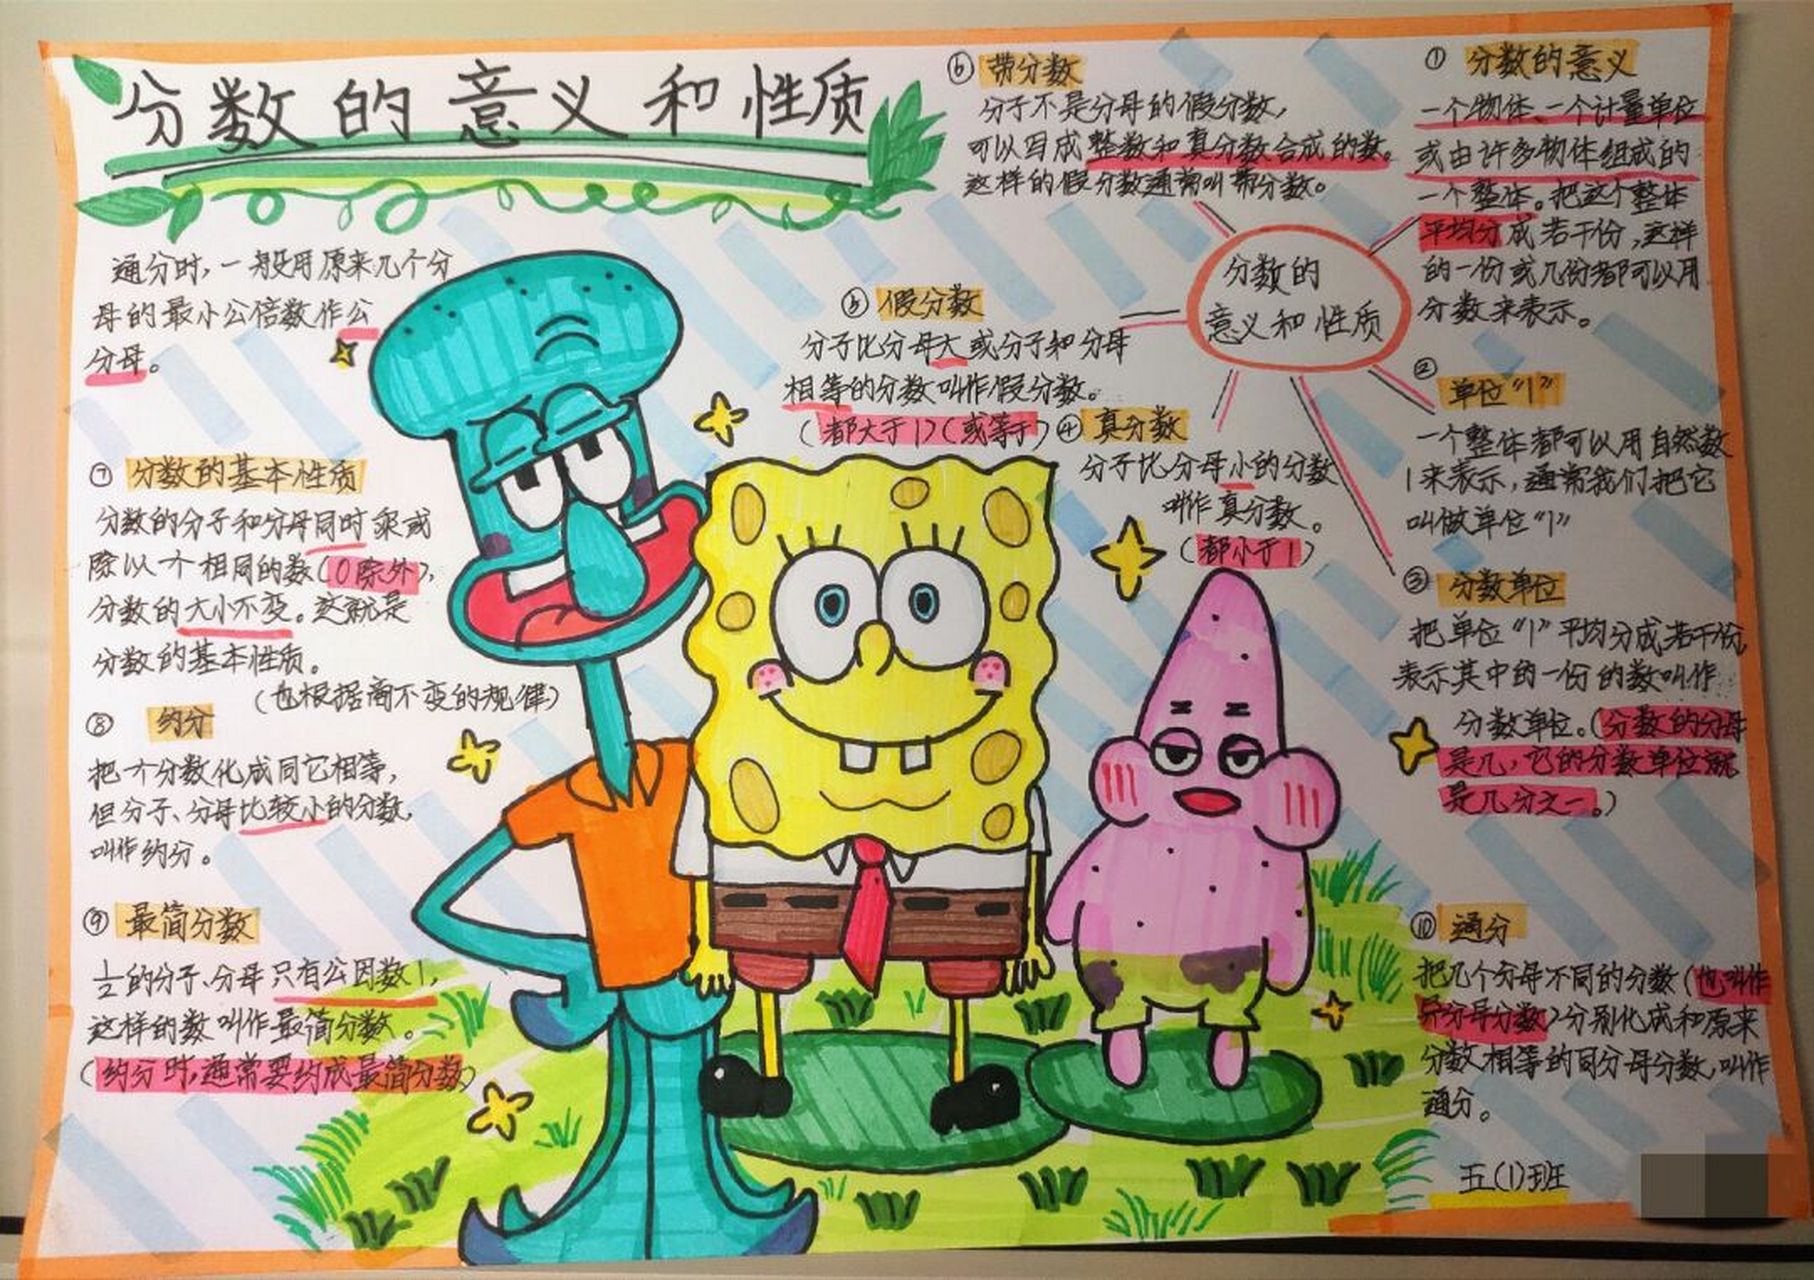 分数的意义和性质
通分时，一般用原来几个分
母的最小公倍数作公
分母。
⑦ 分数的基本性质
分数的分子和分母同时乘或
除以一个相同的数(0除外)，
分数的大小不变。这就是
分数的基本性质。
(也根据商不变的规律)
⑧ 约分
把一个分数化成同它相等，
但分子、分母比较小的分数，
叫作约分。
⑨ 最简分数
½的分子、分母只有公因数1，
这样的数叫作最简分数。
(约分时，通常要约成最简分数)
⑥ 带分数
分子不是分母的假分数，
可以写成整数和真分数合成的数。
这样的假分数通常叫带分数。
⑤ 假分数
分子比分母大或分子和分母
相等的分数叫作假分数。
(都大于1)(或等于)
④ 真分数
分子比分母小的分数
叫作真分数。
(都小于1)
分数的
意义和性质
① 分数的意义
一个物体、一个计量单位
或由许多物体组成的
一个整体。把这个整体
平均分成若干份，这样
的一份或几份都可以用
分数来表示。
②
单位“1”
一个整体都可以用自然数
1来表示，通常我们把它
叫做单位“1”
③ 分数单位
把单位“1”平均分成若干份，
表示其中的一份的数叫作
分数单位。(分数的分母
是几，它的分数单位就
是几分之一。)
⑩ 通分
把几个分母不同的分数(也叫作
异分母分数)分别化成和原来
分数相等的同分母分数，叫作
通分。
五(1)班